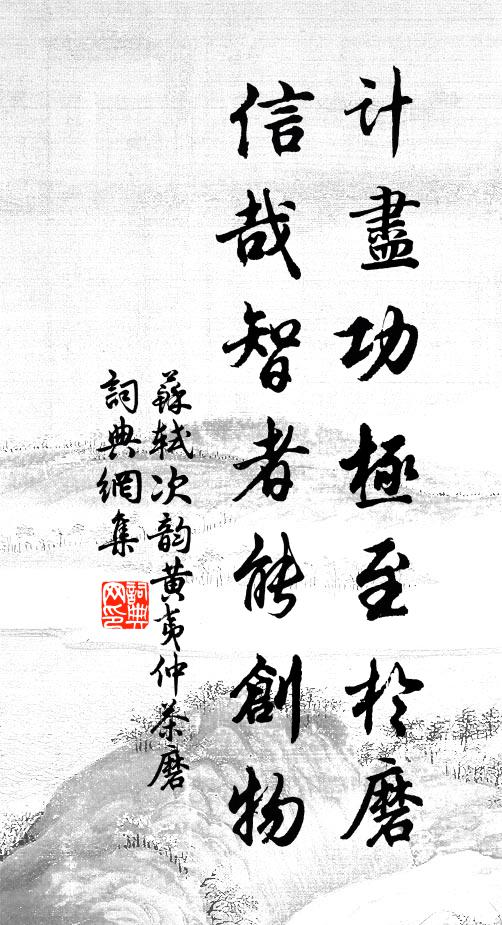 計盡功極至於磨
信哉智者能創物
蘇軾次韵黄夷仲茶磨
詞典網集
詞典網印